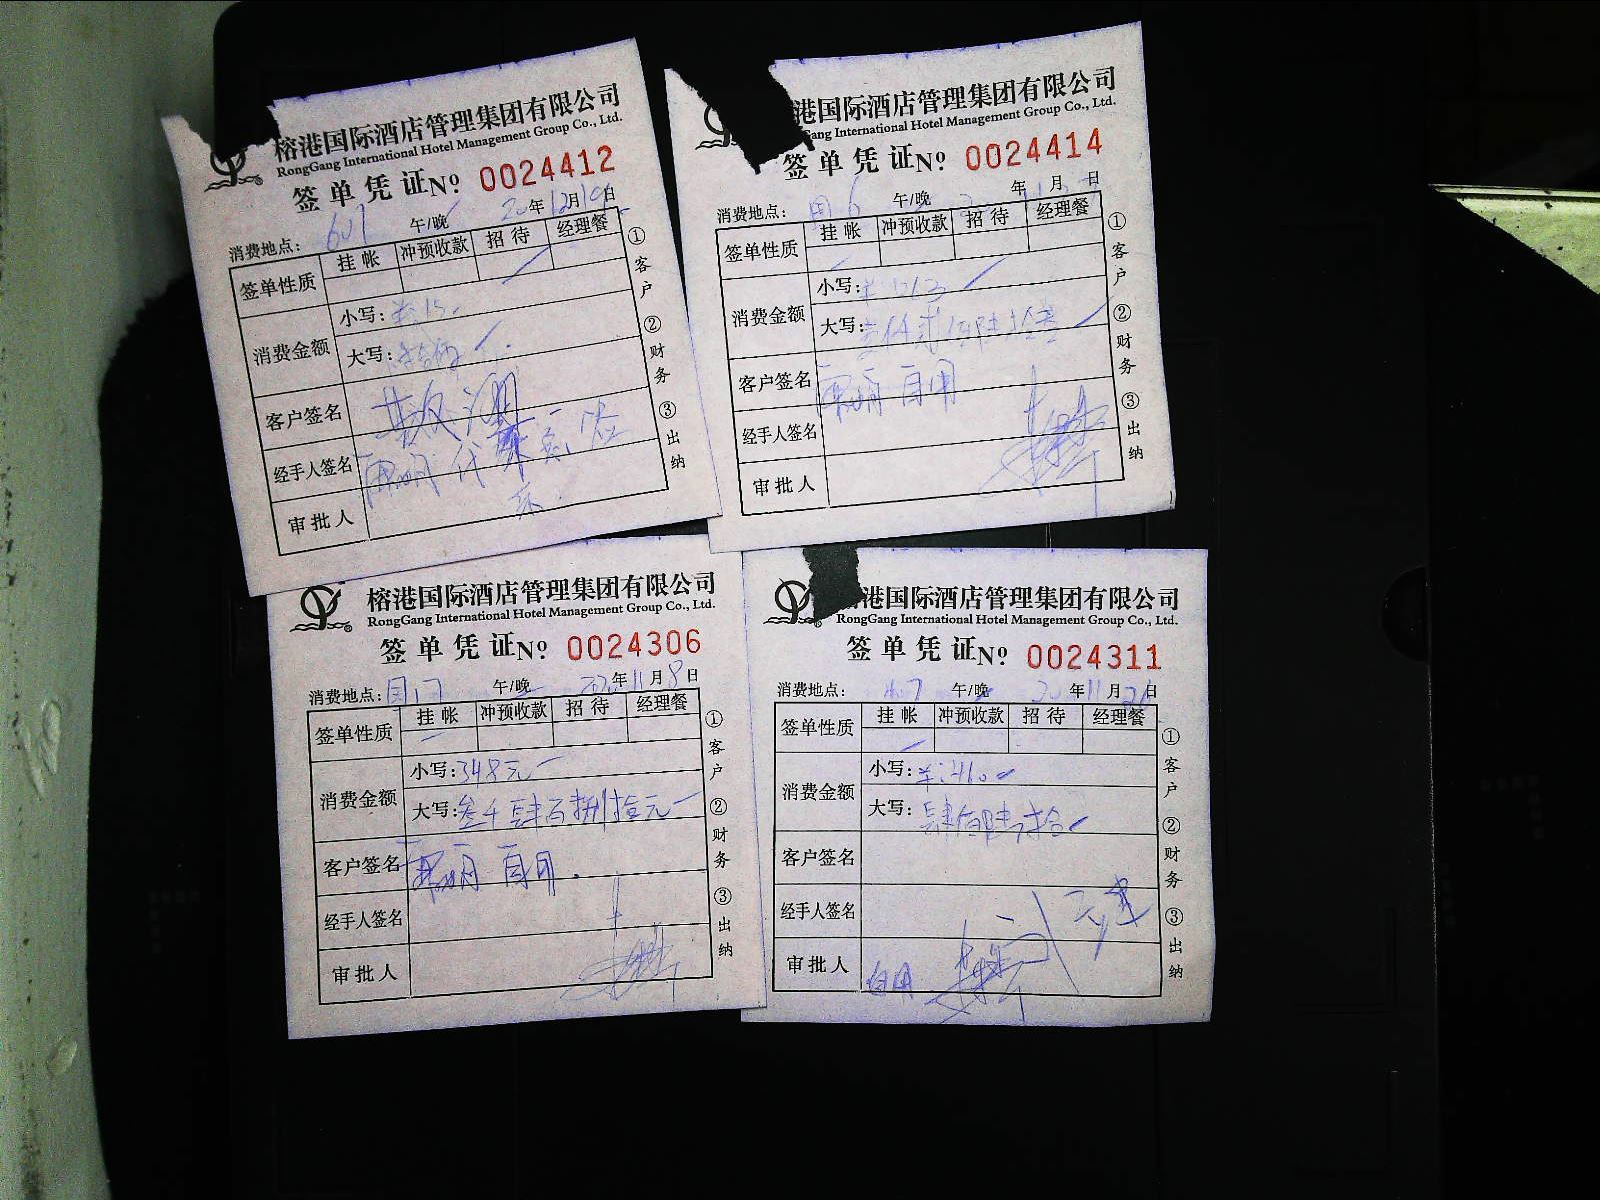 榕港国际酒店管理集团有限公司
RongGang International Hotel Management Group Co., Ltd.
签单凭证 No 0024412
消费地点: 607 午/晚 20年12月19日
签单性质 挂帐 冲预收款 招待 经理餐
消费金额 小写:
大写:
客户签名
经手人签名
审批人
①客户 ②财务 ③出纳
港国际酒店管理集团有限公司
Gang International Hotel Management Group Co., Ltd.
签单凭证 No 0024414
消费地点: 午/晚 年 月 日
签单性质 挂帐 冲预收款 招待 经理餐
消费金额 小写:
大写:
客户签名 自用
经手人签名
审批人
①客户 ②财务 ③出纳
榕港国际酒店管理集团有限公司
RongGang International Hotel Management Group Co., Ltd.
签单凭证 No 0024306
消费地点: 午/晚 年11月8日
签单性质 挂帐 冲预收款 招待 经理餐
消费金额 小写: 348元
大写: 叁千肆百捌拾元
客户签名 自用.
经手人签名
审批人
①客户 ②财务 ③出纳
港国际酒店管理集团有限公司
RongGang International Hotel Management Group Co., Ltd.
签单凭证 No 0024311
消费地点: 午/晚 20年11月26日
签单性质 挂帐 冲预收款 招待 经理餐
消费金额 小写:
大写: 肆佰陆拾
客户签名
经手人签名
审批人 自用
①客户 ②财务 ③出纳